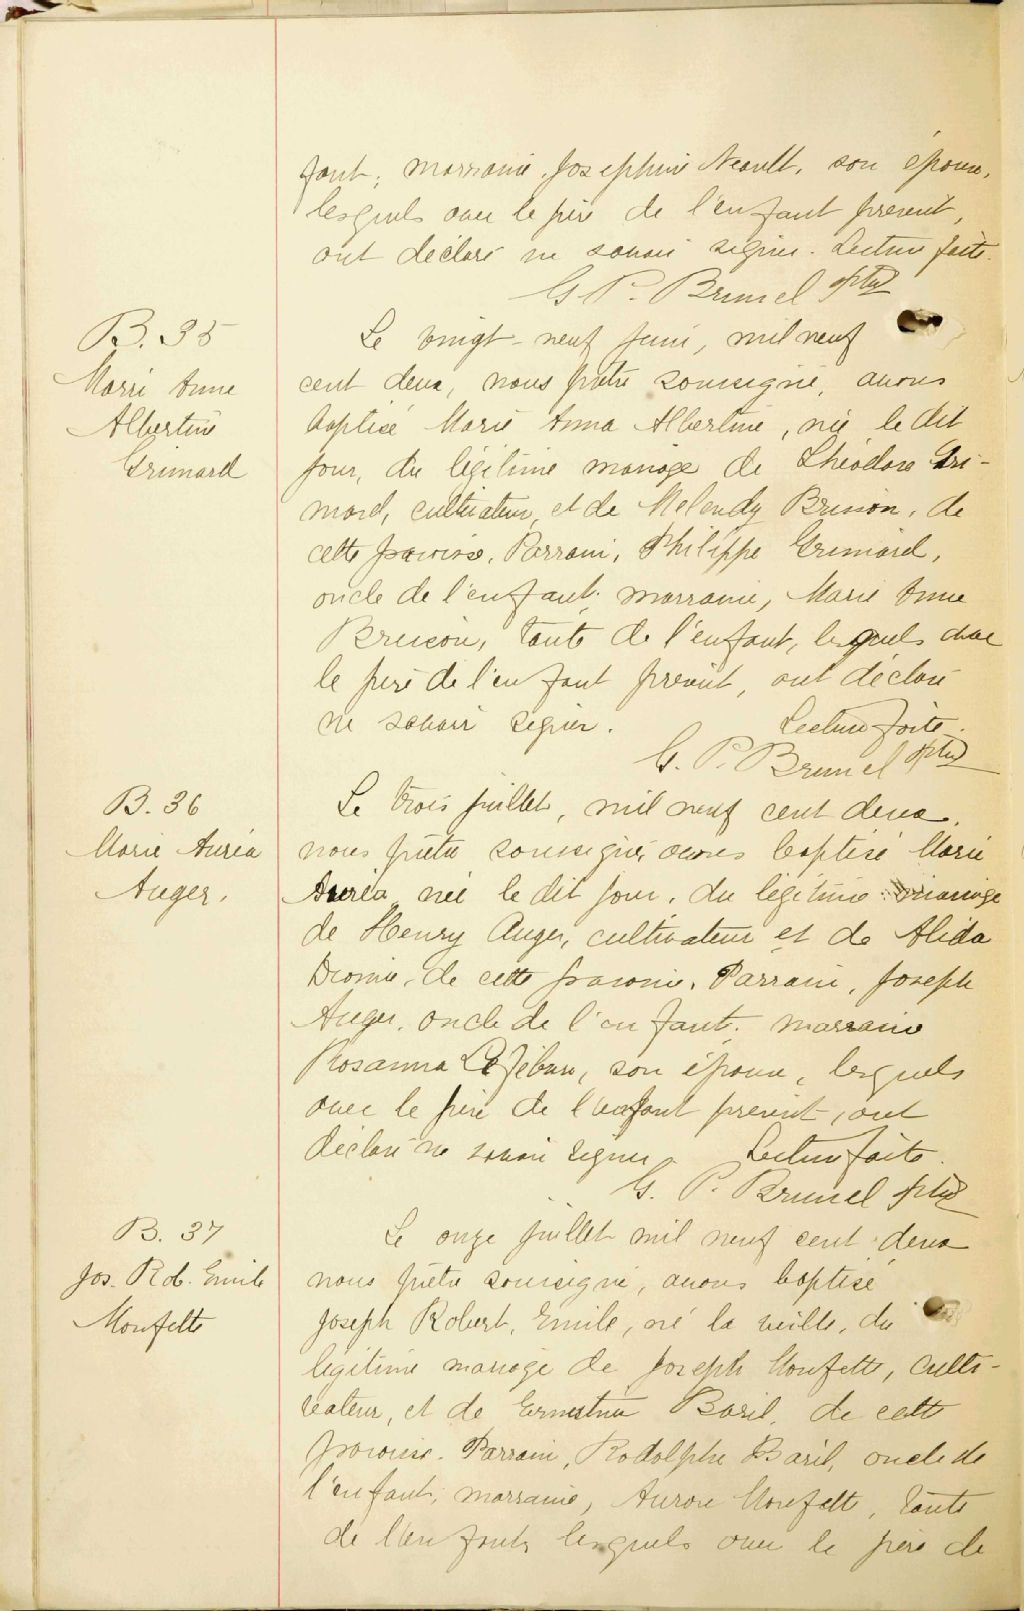 fant; marraine, Josephine Neault, son épouse,
lesquels avec le père de l'enfant present,
ont déclaré ne savoir signer. Lecture faite.
G. P. Brunel ptre
B. 35
Marie Anne
Albertine
Grimard
Le vingt-neuf juin, mil neuf
cent deux, nous prêtre soussigné, avons
baptisé Marie Anna Albertine, née le dit
jour, du légitime mariage de Théodore Gri-
mard, cultivateur, et de Melendy Brunon, de
cette paroisse. Parrain, Philippe Grimard,
oncle de l'enfant; marraine, Marie Anne
tante de l'enfant, lesquels avec
le père de l'enfant present, ont déclaré
ne savoir signer. Lecture faite.
G. P. Brunel ptre
B. 36
Marie Auréa
Auger.
Le trois juillet, mil neuf cent deux,
nous prêtre soussigné, avons baptisé Marie
Auréa, née le dit jour, du légitime mariage
de Henry Auger, cultivateur et de Alida
de cette paroisse. Parrain, Joseph
Auger, oncle de l'enfant; marraine
Rosanna Lefebvre, son épouse, lesquels
avec le père de l'enfant present, ont
déclaré ne savoir signer. Lecture faite.
G. P. Brunel ptre
B. 37
Jos. Rob. Emile
Monfette
Le onze juillet mil neuf cent deux
nous prêtre soussigné, avons baptisé
Joseph Robert, Emile, né la veille, du
légitime mariage de Joseph Monfette, culti-
vateur, et de Ernestine Baril, de cette
paroisse. Parrain, Rodolphe Baril, oncle de
l'enfant; marraine, Aurore Monfette, tante
de l'enfant, lesquels avec le père de